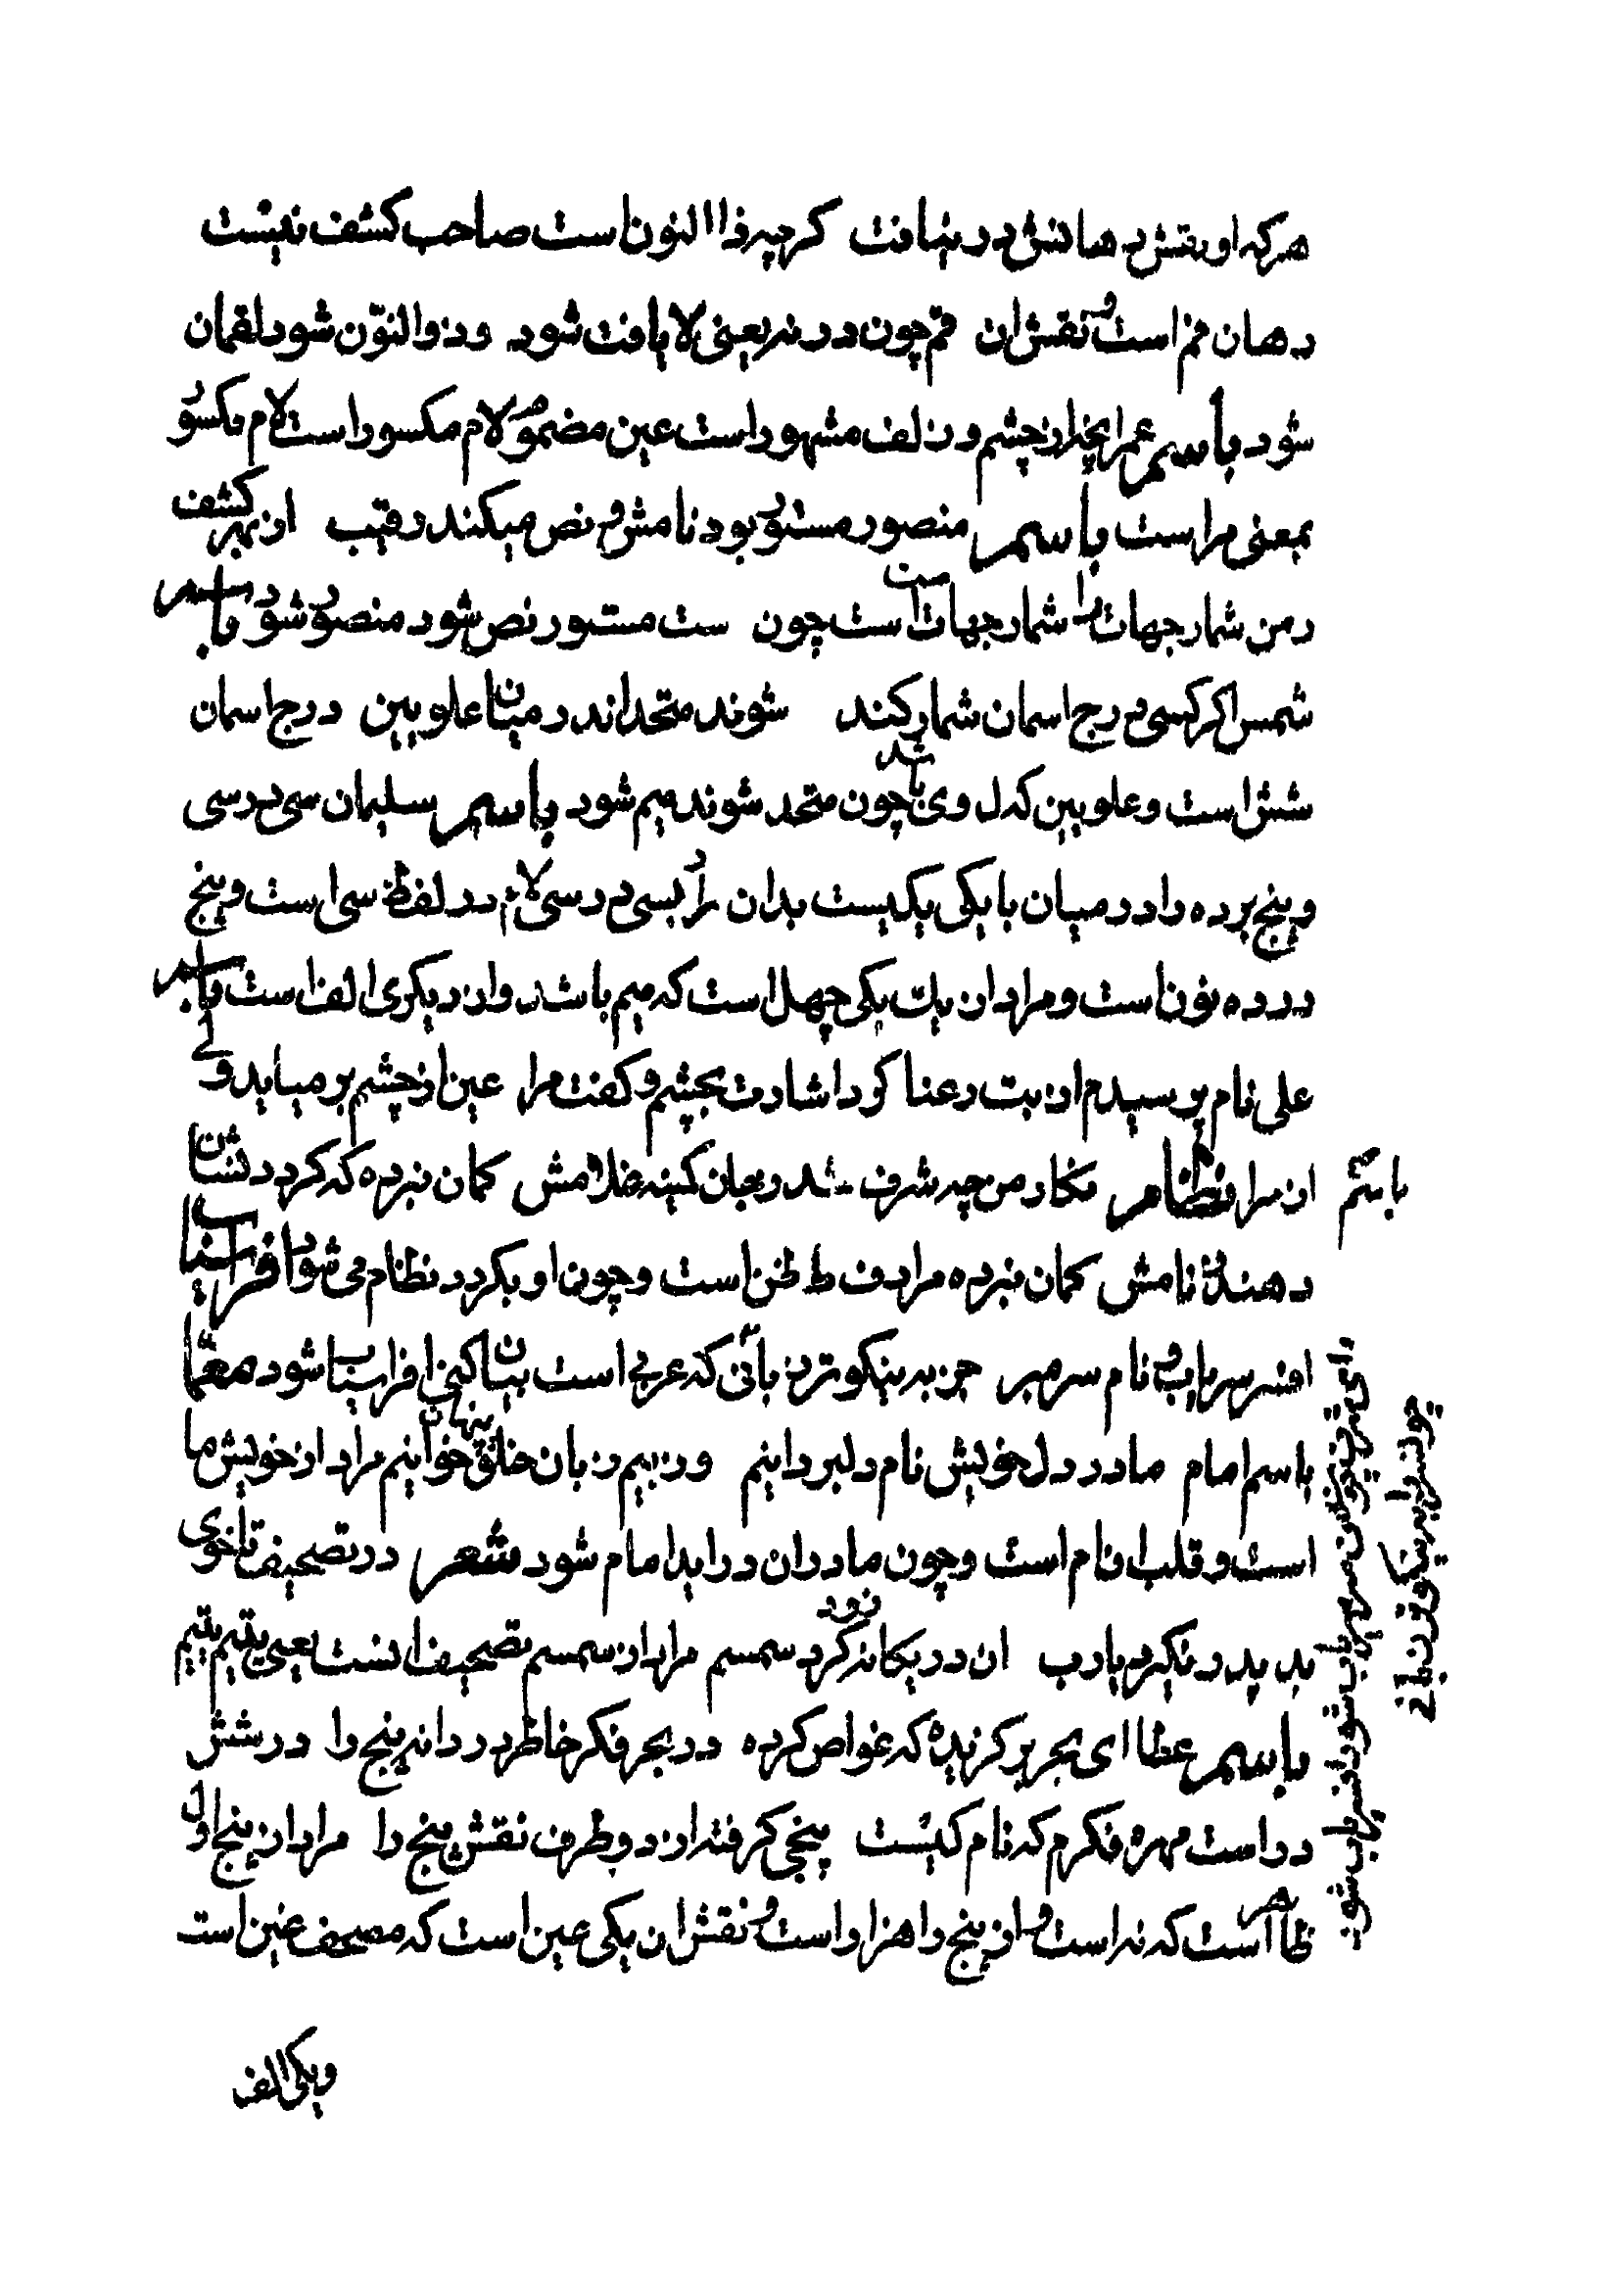 هرکه او نقش دهانش در نیافت کرچه ذا النون است صاحب کشف نیست
دهان فم است و نقش ان قم چون در نه یعنی لا یافت شود و ذو النون شود لقمان
شود باسم عمر انچه از چشم و زلف مشهور است عین مضموم و لام مکسور است لام مکسور
بمعنی مر است باسم منصور مستور بود نامش و نص میکند رقیب از بهر کشف
رمن شمار جهات را شمار جهات ست است چون ست مستور نص شود منصور شود باسم
شمس اکر کسی درج اسمان شمار کند شوند متحد اندر میان علویین درج اسمان
شش است و علویین که ل وی باشد چون متحد شوند میم شود باسم سلیمان سی در سی
و پنج بر ده را در میان با یکی یکیست بدان مراد بسی در سی لام در لفظ سی است و پنج
در ده نون است و مراد از یك یکی چهل است که میم باشد و از دیکری الف است باسم
علی نام پرسیدم از بت رعنا کرد اشارت بچشم و کفت مرا عین از چشم بر میاید و لی
از مرا باسم نظام نکار من چه شرف شد ر بجان کمینه غلامش کمان نبرده که کرد در نشان
دهندۀ نامش کمان نبرده مرادف ط ظن است و چون او بکردد نظام می شود افراسیاب
افسر سهراب و نام سر مهر جز به نیکوتر زبانی که عربی است بیان کنی افراسیاب شود معما
باسم امام ما در دل خویش نام دلبر دانیم وز بیم زبان خلق پنهان خوانیم مراد از خویش ما
است و قلب ان نام است و چون ما در ان در اید امام شود شعر در تصحیف تاخوی
بد پدر نکیرد یارب ان در یکانه کرد زود سمسم مراد از سمسم تصحیف انست یعنی یتیم یتیم
باسم عطا ای بحر پر کزیده که غواص کرده در بحر فکر خاطر در دانه پنج را در شش
در است مهره فکرم که نام کیست پنجی کرفته از دو طرف نقش پنج را مراد از پنج اول
ظاهر است که نه است و از پنج را هزار است و نقش ان یکی عین است که مصحف غین است
ویکی الف